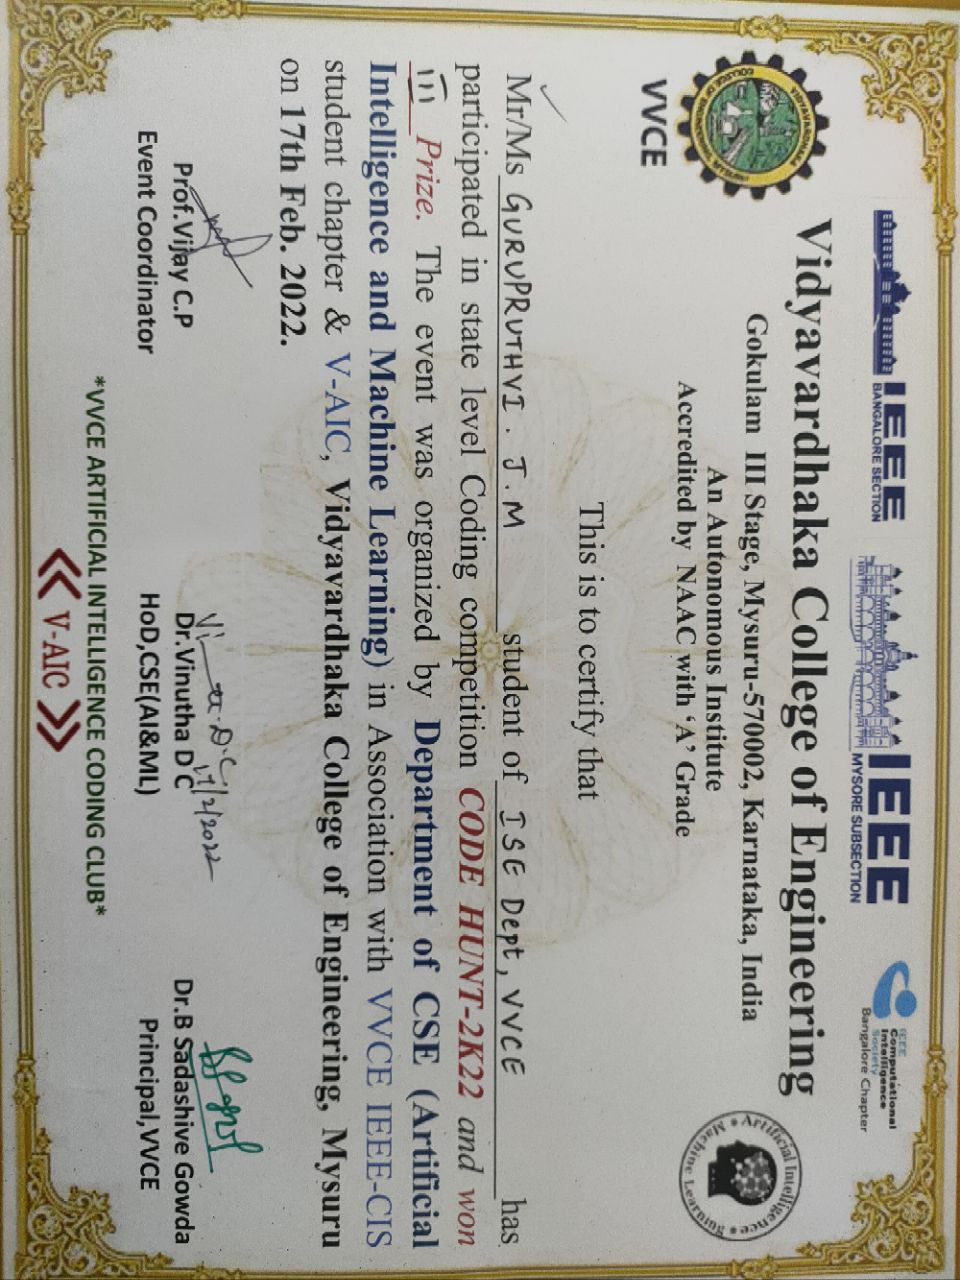 IEEE
BANGALORE SECTION
IEEE
MYSORE SUBSECTION
IEEE
Computational
Intelligence
Society
Bangalore Chapter
VIDYAVARDHAKA
COLLEGE OF ENGINEERING
VVCE
Vidyavardhaka College of Engineering
Gokulam III Stage, Mysuru-570002, Karnataka, India
An Autonomous Institute
Accredited by NAAC with ‘A’ Grade
Artificial Intelligence
Machine Learning
This is to certify that
Mr/Ms GURUPRUTHVI . J.M student of ISE Dept, VVCE has
participated in state level Coding competition CODE HUNT-2K22 and won
III Prize. The event was organized by Department of CSE (Artificial
Intelligence and Machine Learning) in Association with VVCE IEEE-CIS
student chapter & V-AIC, Vidyavardhaka College of Engineering, Mysuru
on 17th Feb. 2022.
17/2/2022
Prof.Vijay C.P
Event Coordinator
Dr.Vinutha D C
HoD,CSE(AI&ML)
Dr.B Sadashive Gowda
Principal,VVCE
*VVCE ARTIFICIAL INTELLIGENCE CODING CLUB*
V-AIC